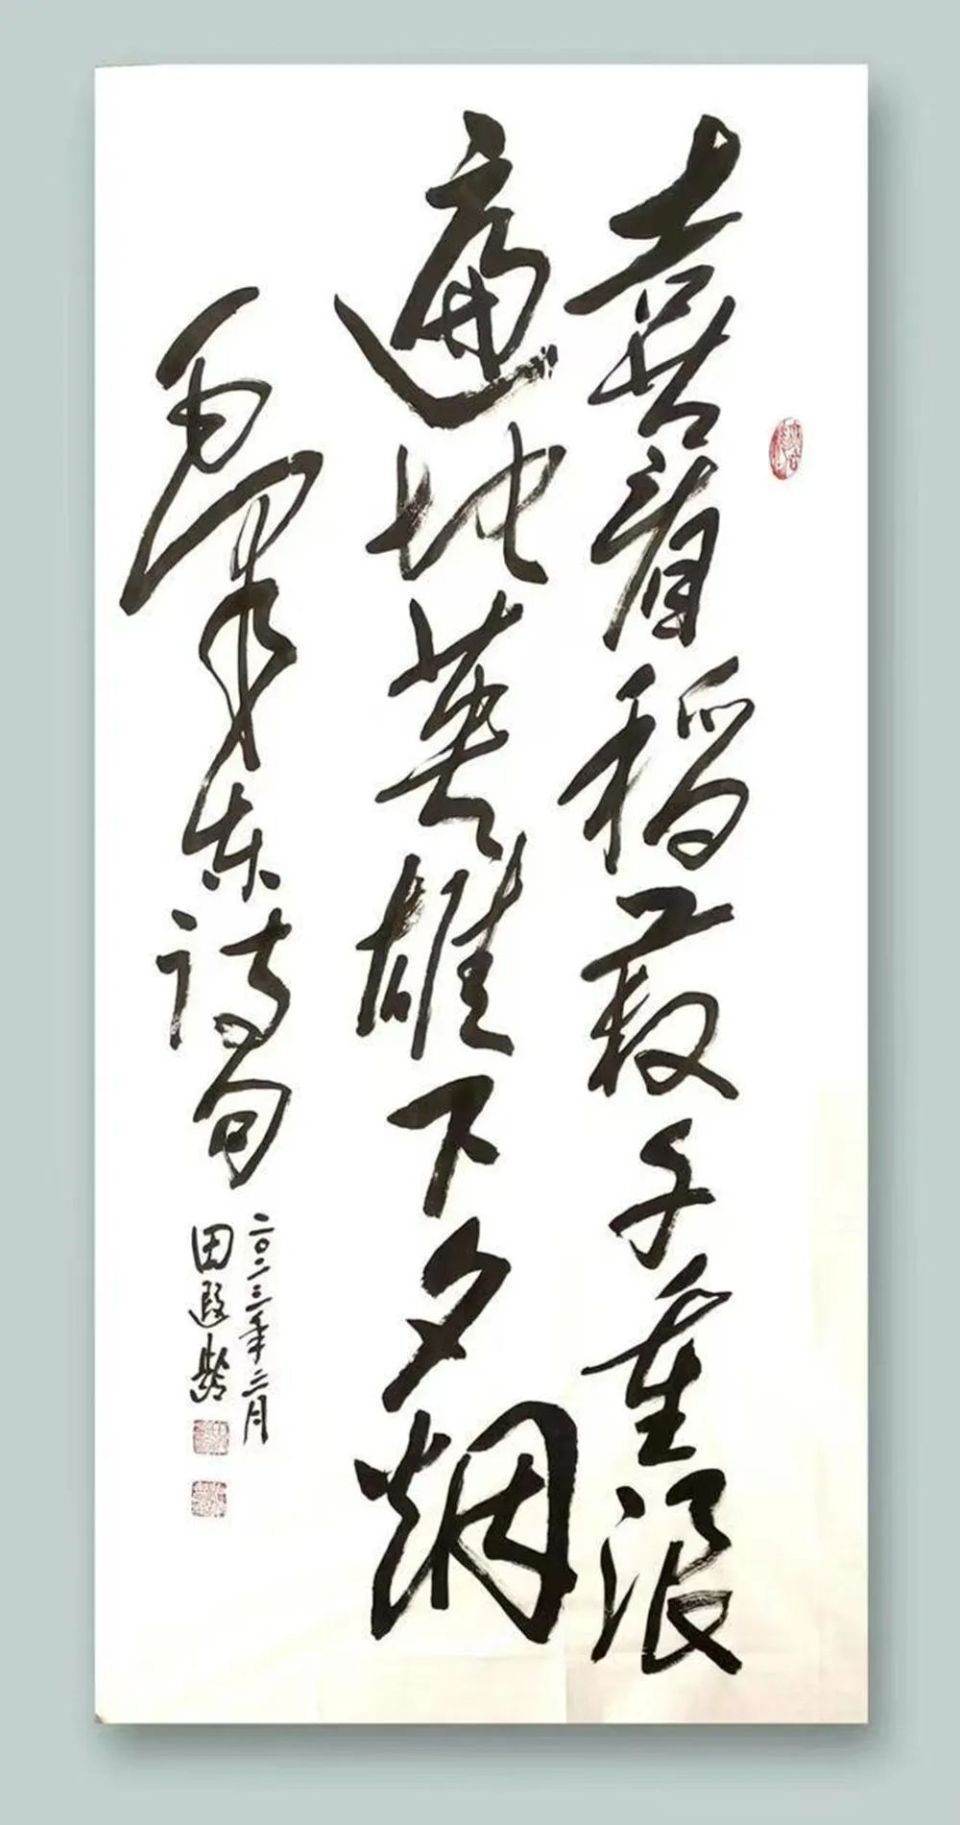 喜看稻菽千重浪
遍地英雄下夕烟
毛泽东诗句
二〇二三年二月
田遐龄